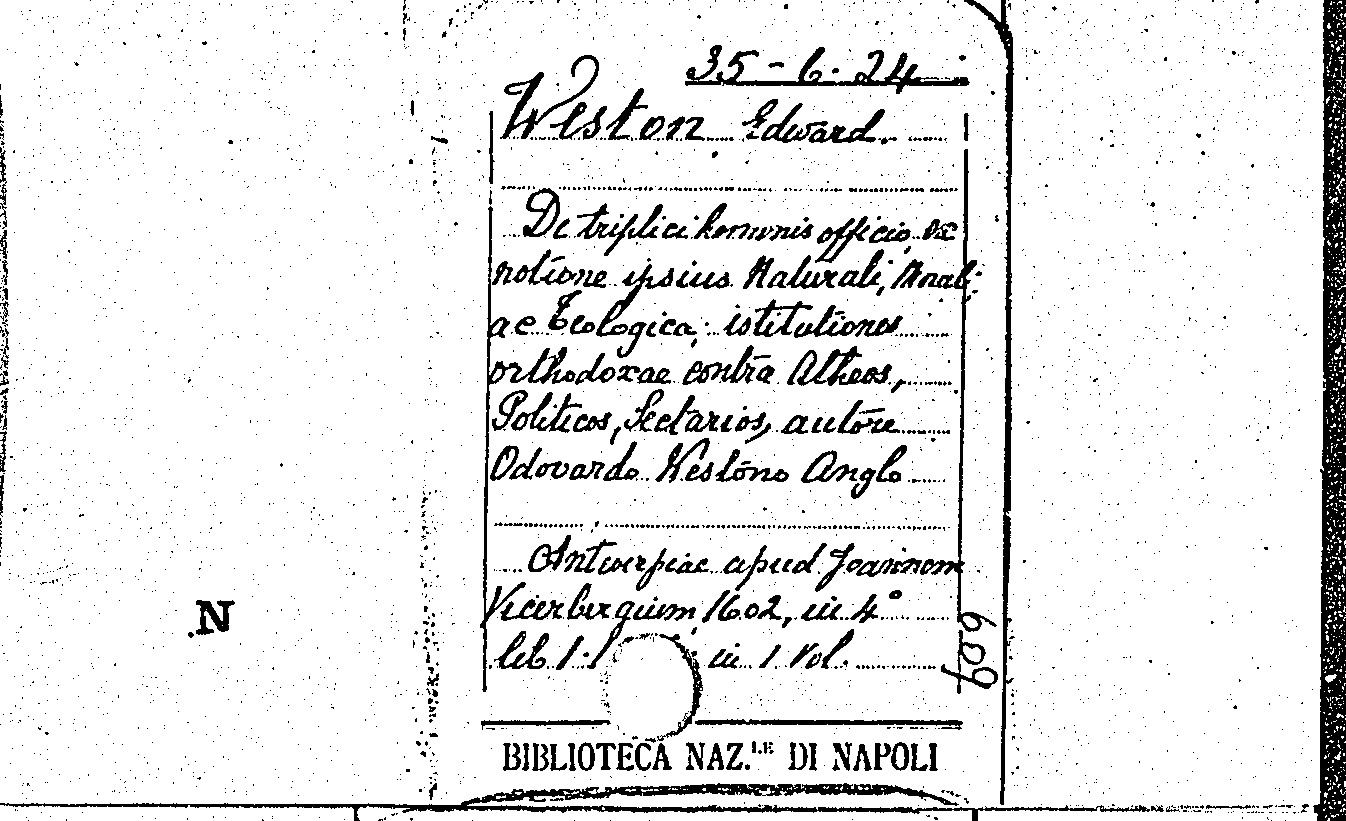 35-6.24
Weston Edward.
De triplici hominis officio, ex
notione ipsius Naturali, Morali,
ac Teologica; istitutiones
orthodoxae contra Atheos,
Politicos, Sectarios, autore
Odovardo Westono Anglo
Antwerpiae apud Joannem
1602, in 4°
lib 1. in 1 Vol.
609
N
BIBLIOTECA NAZ.LE DI NAPOLI